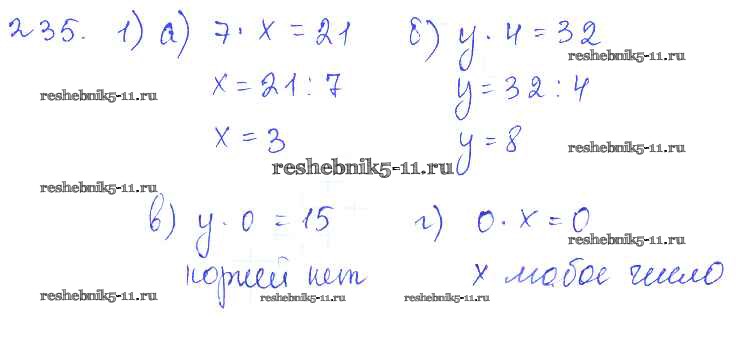 235. 1) а) 7 · x = 21 б) y · 4 = 32
reshebnik5-11.ru
x = 21 : 7 y = 32 : 4
reshebnik5-11.ru
x = 3 y = 8
reshebnik5-11.ru
reshebnik5-11.ru
reshebnik5-11.ru
в) y · 0 = 15 г) 0 · x = 0
reshebnik5-11.ru
корней нет x любое число
reshebnik5-11.ru reshebnik5-11.ru reshebnik5-11.ru